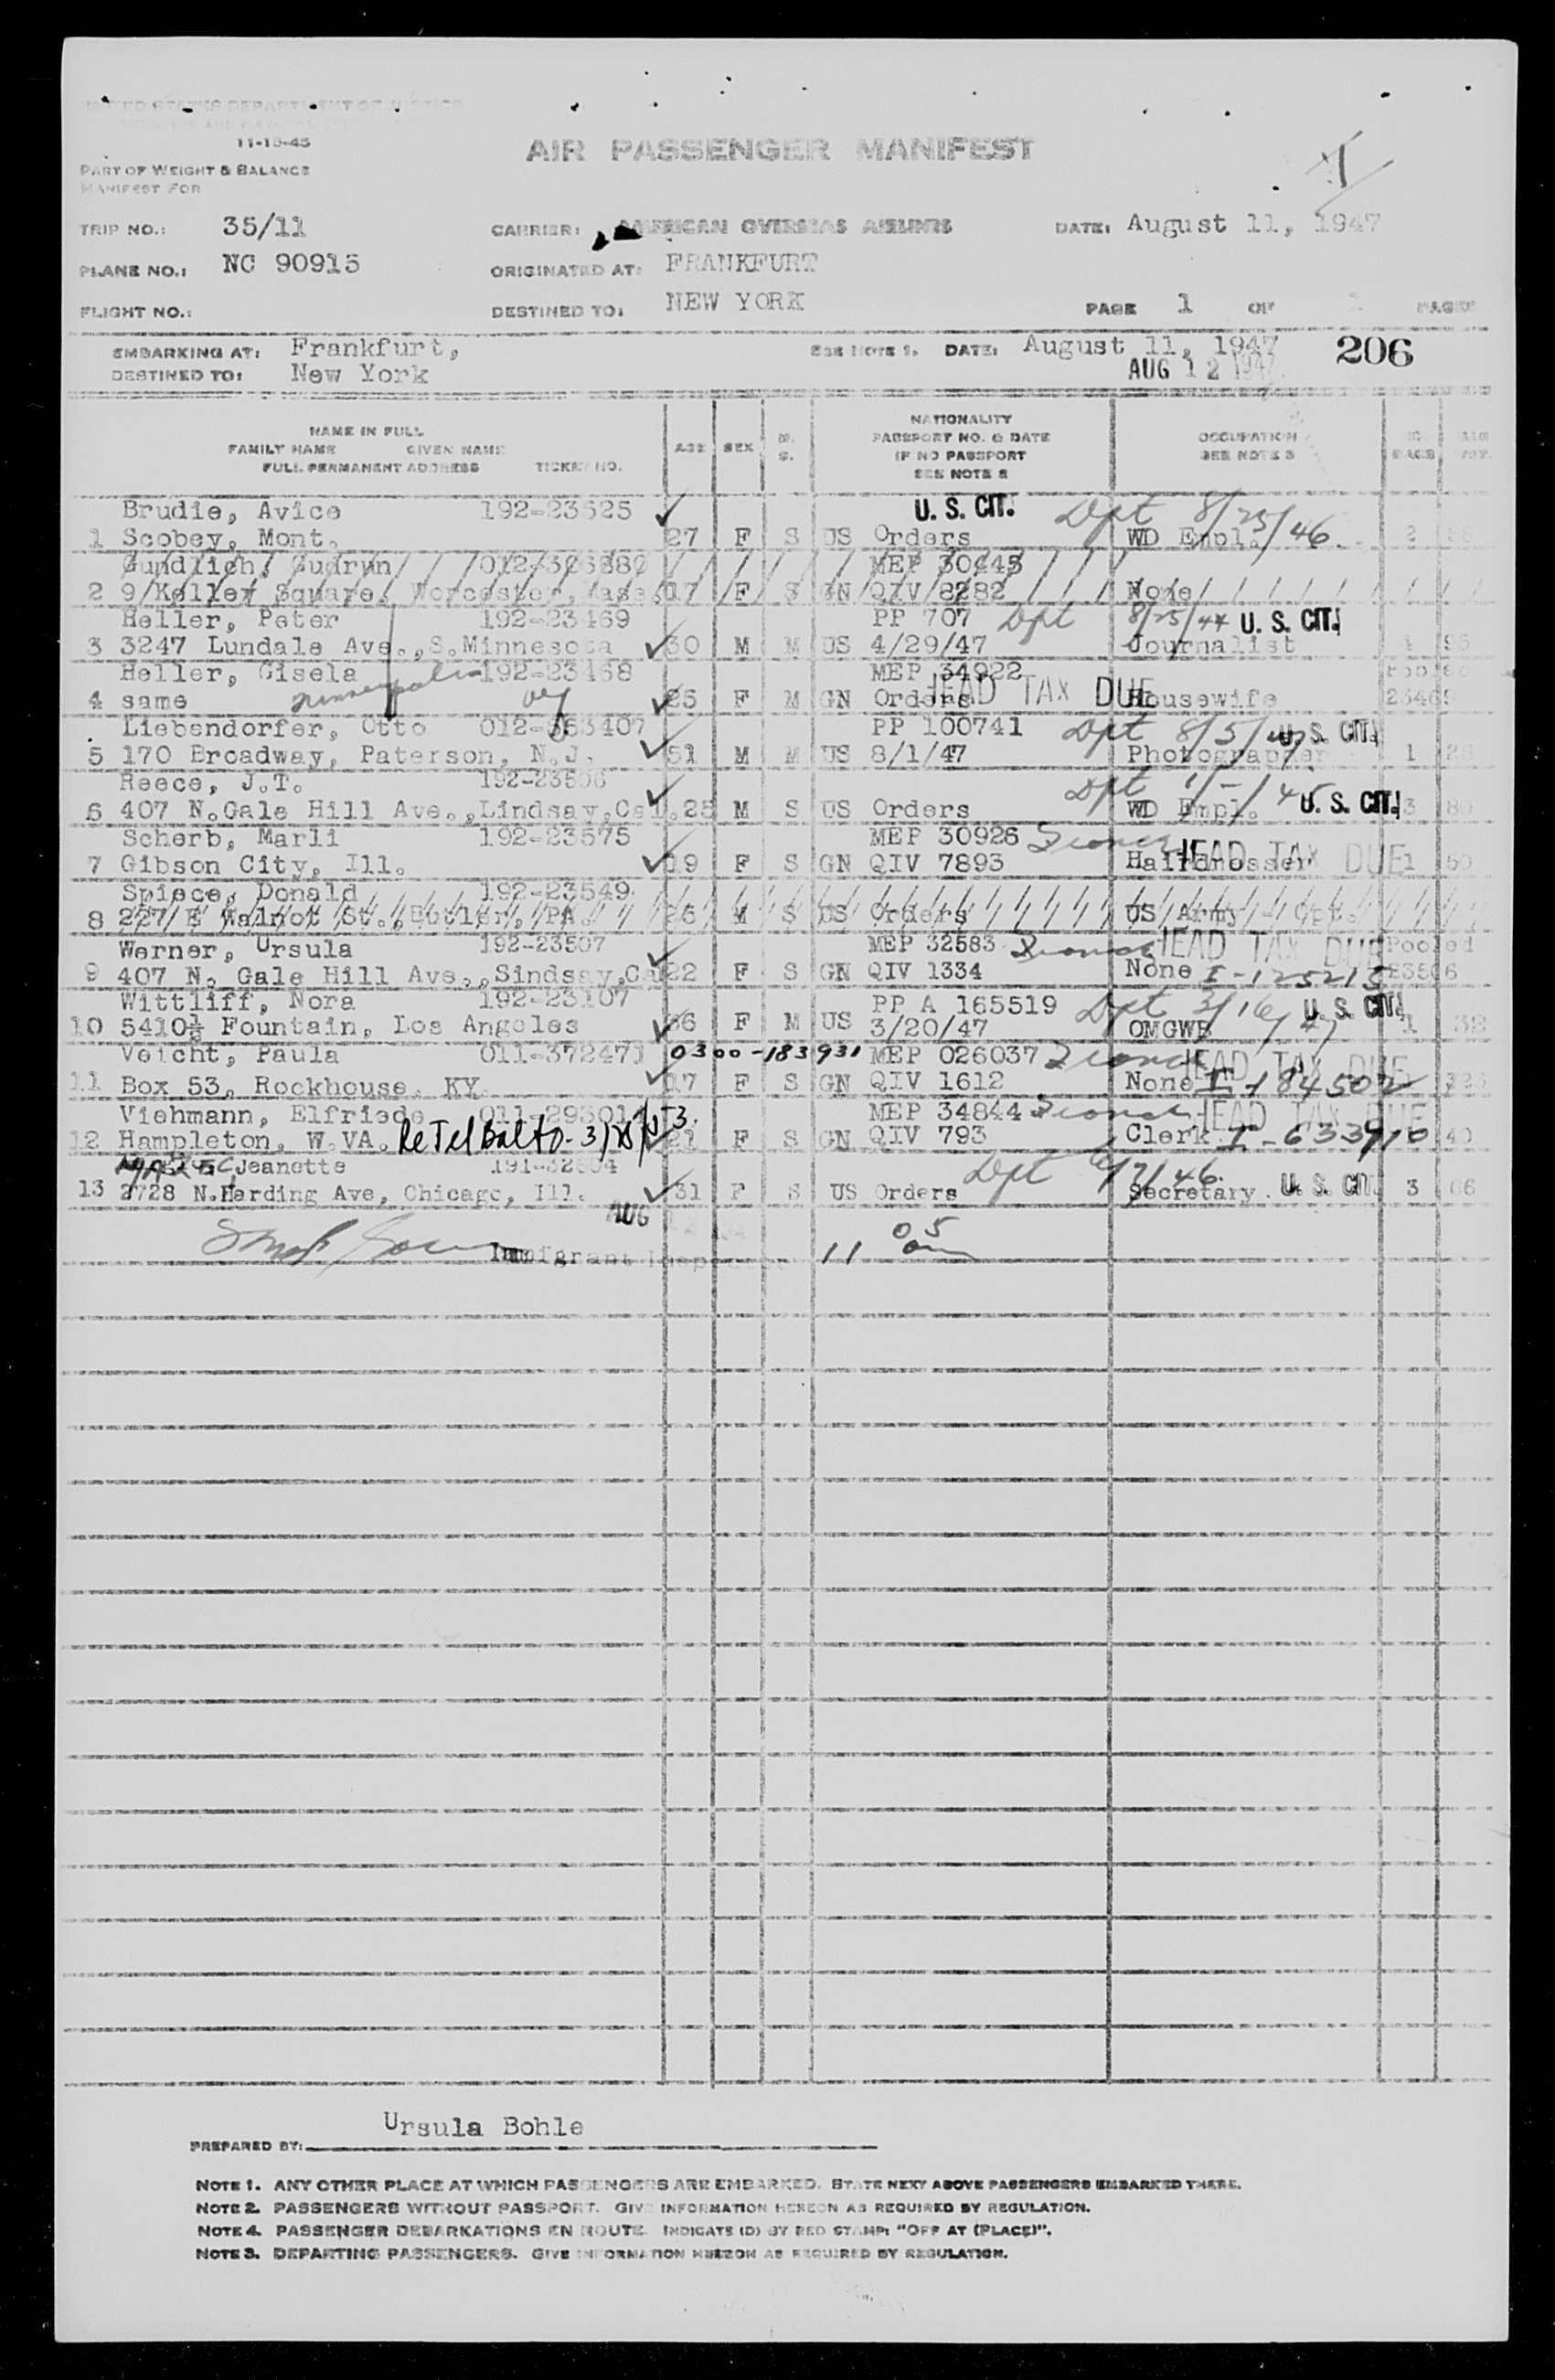 UNITED STATES DEPARTMENT OF JUSTICE
11-15-45
PART OF WEIGHT & BALANCE
MANIFEST FOR
AIR PASSENGER MANIFEST
TRIP NO.: 35/11 CARRIER: AMERICAN OVERSEAS AIRLINES DATE: August 11, 1947
PLANE NO.: NC 90915 ORIGINATED AT: FRANKFURT
FLIGHT NO.: DESTINED TO: NEW YORK PAGE 1 OF PAGES
EMBARKING AT: Frankfurt, SEE NOTE 1. DATE: August 11, 1947 206
DESTINED TO: New York AUG 12 1947
NAME IN FULL
FAMILY NAME GIVEN NAME
FULL PERMANENT ADDRESS TICKET NO.
AGE SEX M. S.
NATIONALITY
PASSPORT NO. & DATE
IF NO PASSPORT
SEE NOTE 2
OCCUPATION
SEE NOTE 3
Brudie, Avice 192-23525 U. S. CIT. Dpt 8/25/46
1 Scobey, Mont. 27 F S US Orders WD Empl. 2
Gundlich, Gudrun MEP 30445
2 9 Kelley Square, Worcester, Mass. 17 F S GN QIV 8282 None
Heller, Peter 192-23469 PP 707 Dpt U. S. CIT.
3 3247 Lundale Ave., S. Minnesota 30 M M US 4/29/47 Journalist
Heller, Gisela 192-23468 MEP 34922 HEAD TAX DUE
4 same Minneapolis 25 F M GN Orders Housewife 23469
Liebendorfer, Otto 012-363407 PP 100741 Dpt U. S. CIT.
5 170 Broadway, Paterson, N.J. 31 M M US 8/1/47 Photographer 1
Reece, J.T. 192-23506 Dpt
6 407 N.Gale Hill Ave.,Lindsay,Cal. 25 M S US Orders WD Empl. U. S. CIT. 3 80
Scherb, Marli 192-23575 MEP 30926 HEAD TAX DUE
7 Gibson City, Ill. 19 F S GN QIV 7893 Hairdresser 1 50
Spiece, Donald 192-23549
8 227 E Walnot St., Butler, PA. 26 M S US Orders US Army
Werner, Ursula 192-23507 MEP 32583 HEAD TAX DUE Pooled
9 407 N. Gale Hill Ave.,Sindsay,Ca 22 F S GN QIV 1334 None I-125215 23506
Wittliff, Nora 192-23107 PP A 165519 Dpt 3/16/47 U. S. CIT.
10 5410½ Fountain, Los Angeles 36 F M US 3/20/47 OMGWB 1 32
Veicht, Paula 011-37247 0300-183931 MEP 026037 HEAD TAX DUE
11 Box 53, Rockhouse, KY. 17 F S GN QIV 1612 None I-184502
Viehmann, Elfriede 011-29301 MEP 34844 HEAD TAX DUE
12 Hampleton, W.VA. Re Tel Balto- 3/18/53. 21 F S GN QIV 793 Clerk I-633910 40
Jeanette 191-32604 Dpt 6/7/46
13 2728 N.Harding Ave, Chicago, Ill. 31 F S US Orders Secretary U. S. CIT. 3 66
AUG
Immigrant Inspector 11 05
Ursula Bohle
PREPARED BY:
NOTE 1. ANY OTHER PLACE AT WHICH PASSENGERS ARE EMBARKED. STATE NEXT ABOVE PASSENGERS EMBARKED THERE.
NOTE 2. PASSENGERS WITHOUT PASSPORT. GIVE INFORMATION HEREON AS REQUIRED BY REGULATION.
NOTE 4. PASSENGER DEBARKATIONS EN ROUTE. INDICATE (D) BY RED STAMP: "OFF AT (PLACE)".
NOTE 3. DEPARTING PASSENGERS. GIVE INFORMATION HEREON AS REQUIRED BY REGULATION.